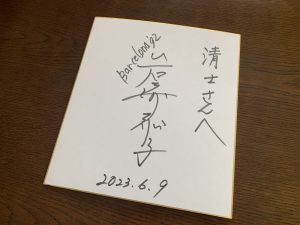 清士さんへ
Barcelona'92
岩崎恭子
2023.6.9